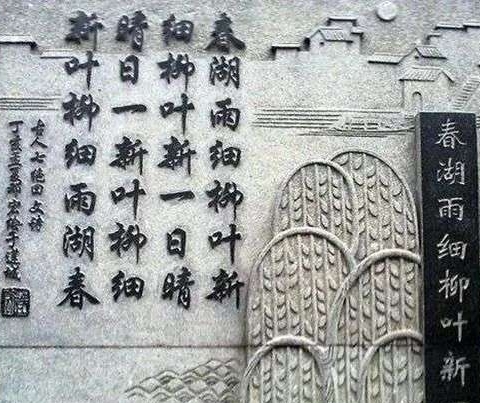 春湖雨细柳叶新
春湖雨细柳叶新
细柳叶新一日晴
晴日一新叶柳细
新叶柳细雨湖春
古人七绝回文诗
丁亥孟夏